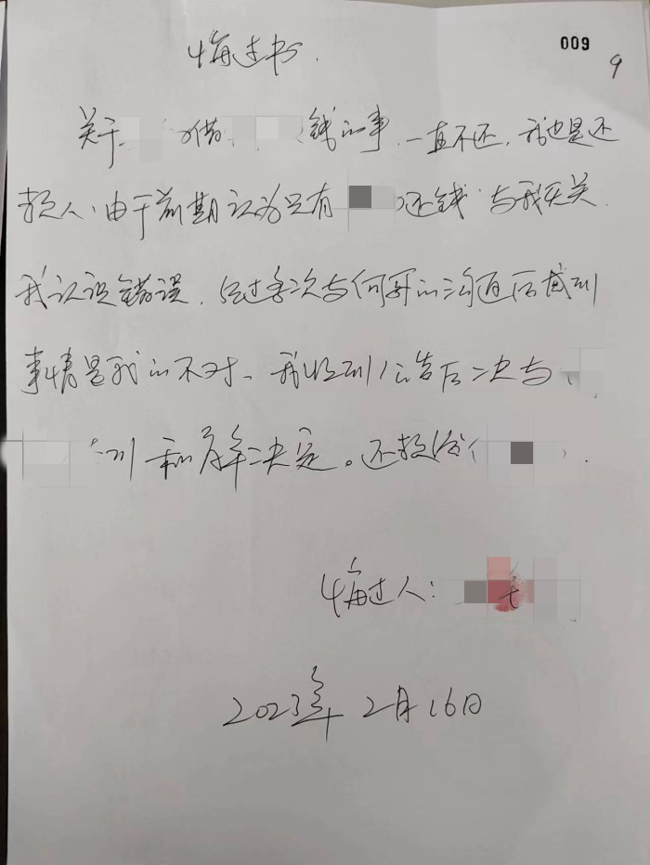 009
9
悔过书.
关于 借 钱的事,一直不还,我也是还
款人,由于前期认为只有 还钱 与我无关.
我认识错误,经过多次与何军的沟通后感到
事情是我的不对、我收到公告后决与
和解决定。还款给( ).
悔过人:
2023年2月16日